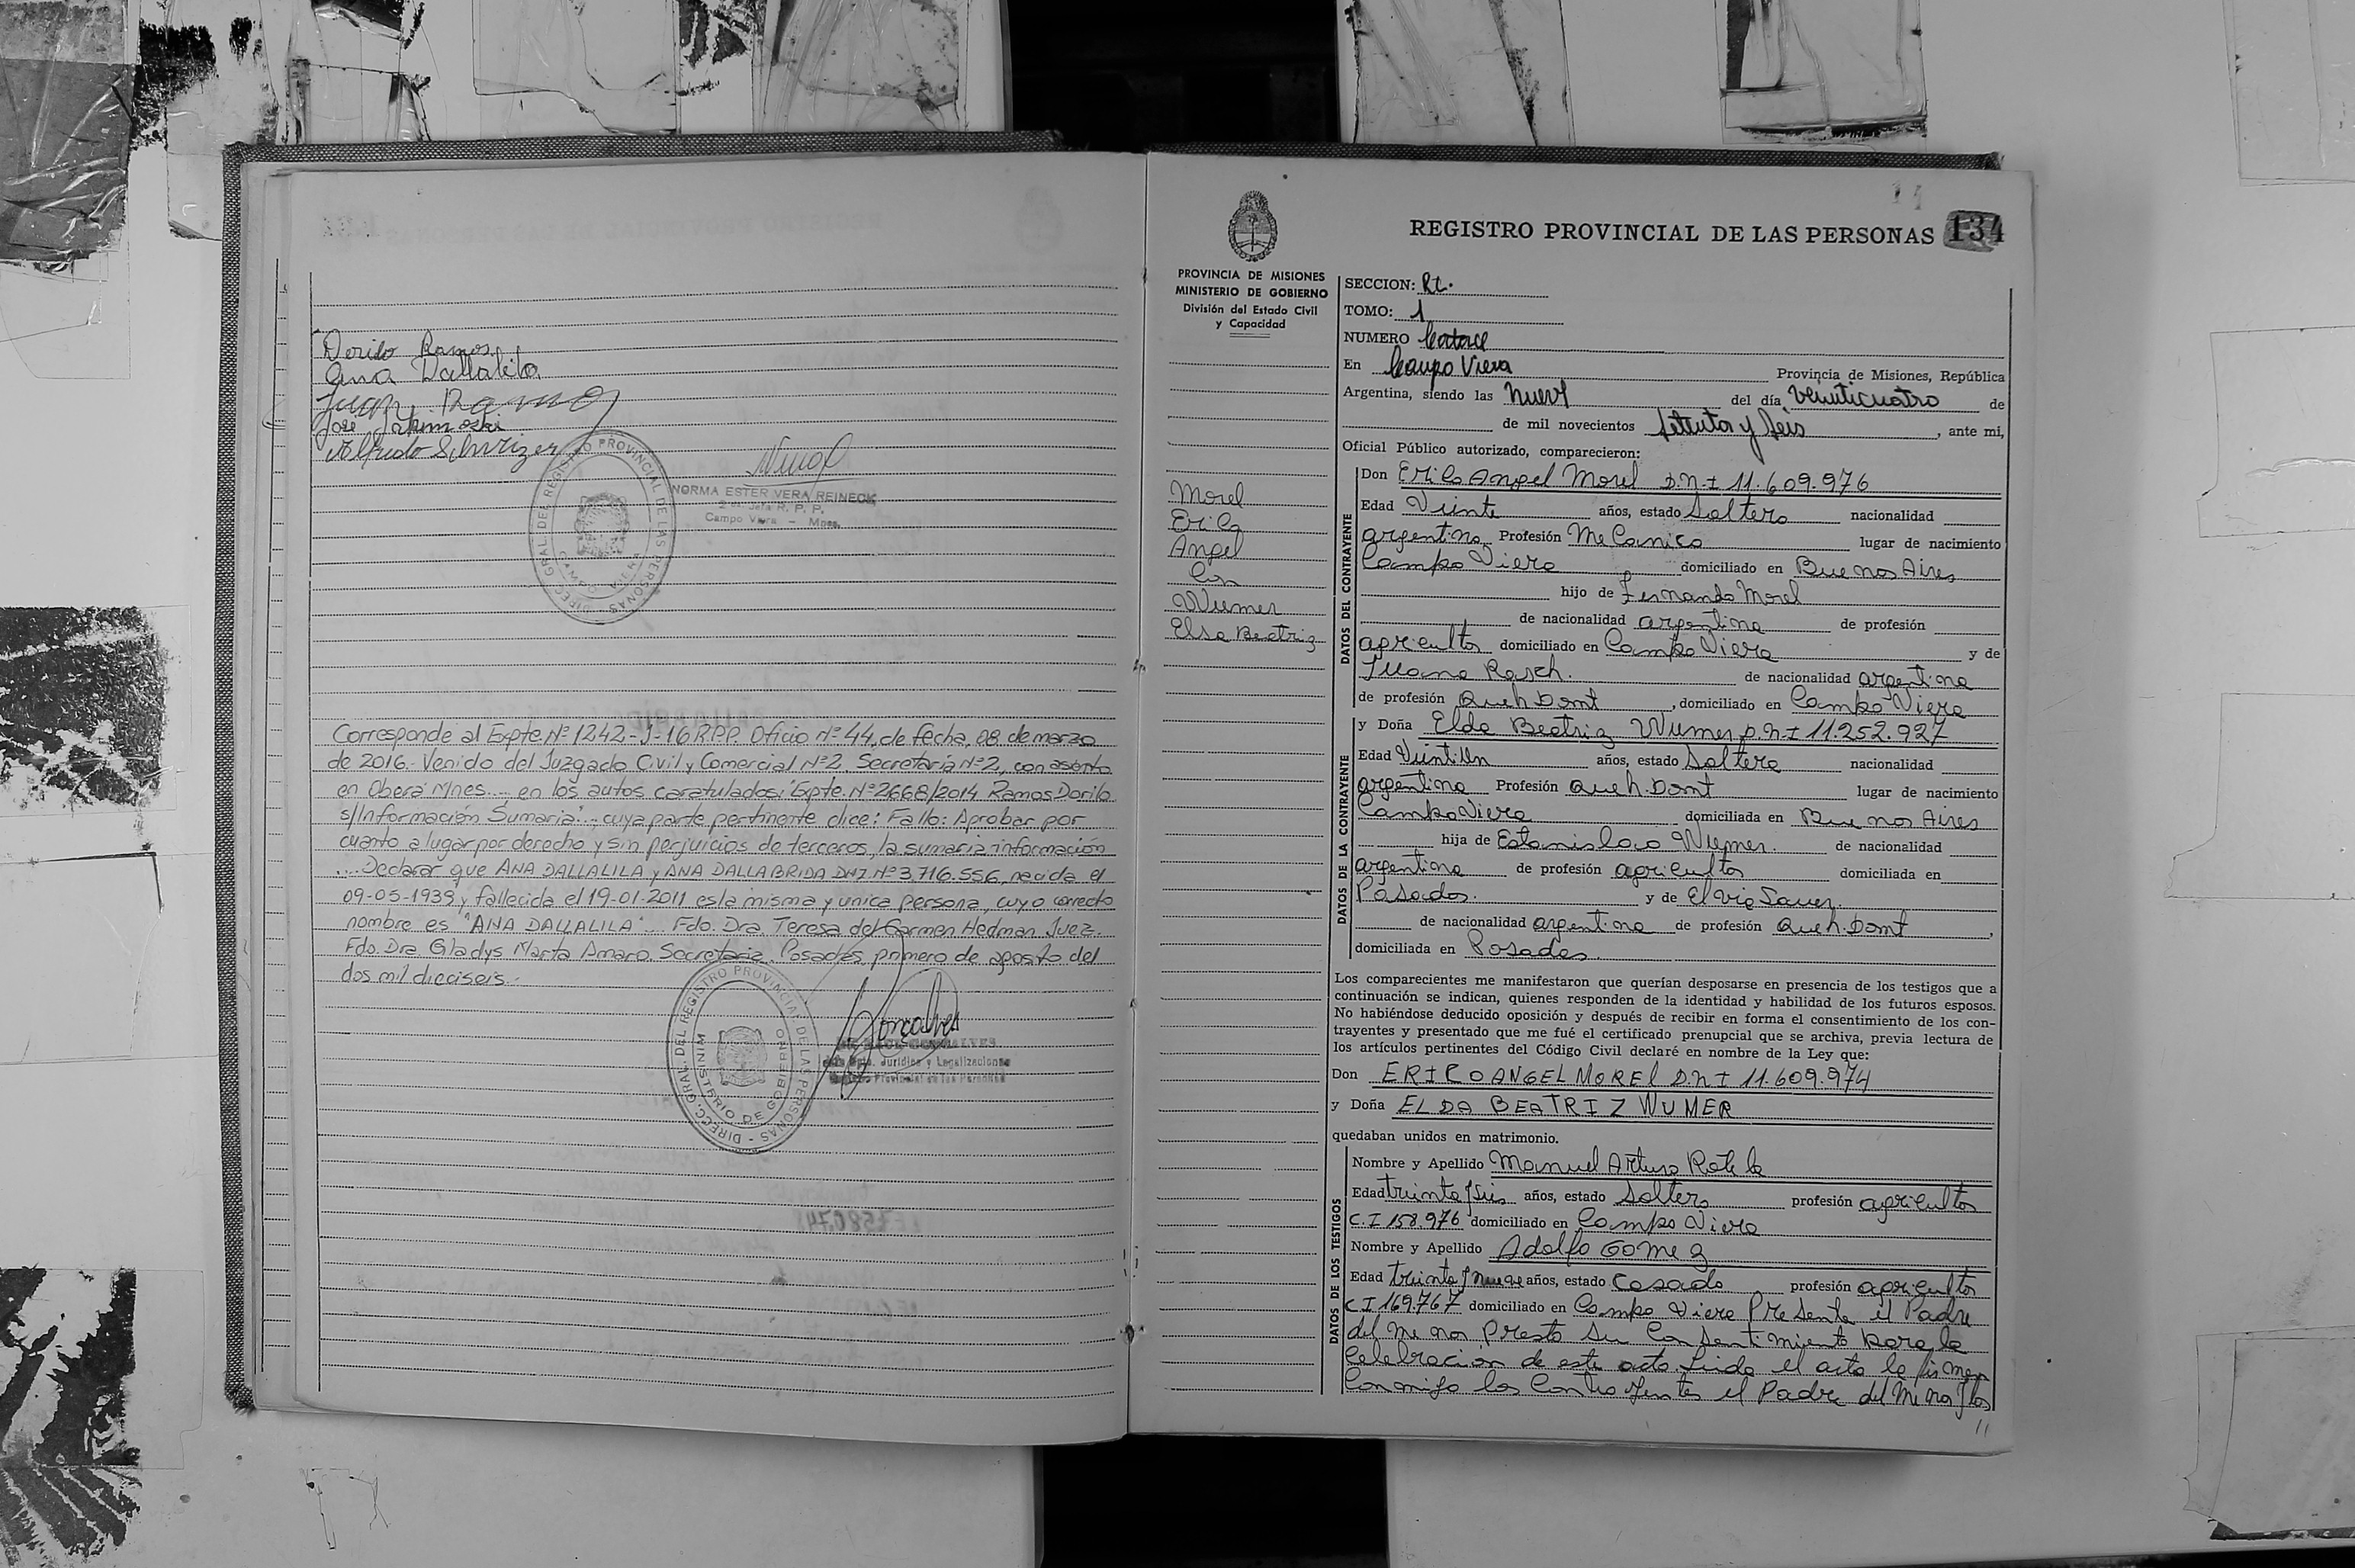 Dorilo Ramos
Ana Dallalila
Juan Ramos
Jose
Alfredo Schvizer
DIREC. GRAL. DEL REGISTRO PROVINCIAL DE LAS PERSONAS
CAMPO VIERA
NORMA ESTER VERA REINECK
Jefa R. P. P.
Campo Viera - Mnes.
Corresponde al Expte. Nº 1242-J-16 R.P.P. Oficio Nº 44, de fecha, 08 de marzo
de 2016.- Venido del Juzgado Civil y Comercial Nº2, Secretaria Nº2, con asiento
en Oberá Mnes.-, en los autos caratulados: "Expte. Nº2668/2014 Ramos Dorilo
s/Información Sumaria".-, cuya parte pertinente dice: Fallo: Aprobar por
cuanto a lugar por derecho y sin perjuicios de terceros, la sumaria información
... Declarar que ANA DALLALILA y ANA DALLABRIDA DNI Nº3,716.556, nacida el
09-05-1939 y fallecida el 19-01-2011 es la misma y unica persona, cuyo correcto
nombre es "ANA DALLALILA"... Fdo. Dra. Teresa del Carmen Hedman Juez.-
Fdo. Dra. Gladys Marta Amaro. Secretaria. Posadas, primero de agosto del
dos mil dieciseis.-
DIREC. GRAL. DEL REGISTRO PROVINCIAL DE LAS PERSONAS -
MINISTERIO DE GOBIERNO
Gonçalves
Dpto. Jurídica y Legalizaciones
Registro Provincial de las Personas
14
REGISTRO PROVINCIAL DE LAS PERSONAS 134
PROVINCIA DE MISIONES
MINISTERIO DE GOBIERNO
División del Estado Civil
y Capacidad
SECCION: Rt.
TOMO: 1
NUMERO Catorce
En Campo Viera Provincia de Misiones, República
Argentina, siendo las nueve del día veinticuatro de
de mil novecientos setenta y seis, ante mi,
Oficial Público autorizado, comparecieron:
Morel
Erico
Angel
Con
Wumer
Elsa Beatriz
DATOS DEL CONTRAYENTE
Don Erico Angel Morel D.N.I 11.609.976
Edad Veinte años, estado Soltero nacionalidad
argentina Profesión Mecanico lugar de nacimiento
Campo Viera domiciliado en Buenos Aires
hijo de Fernando Morel
de nacionalidad argentina de profesión
agricultor domiciliado en Campo Viera y de
Rasch. de nacionalidad argentina
de profesión Queh Domt, domiciliado en Campo Viera
DATOS DE LA CONTRAYENTE
y Doña Elda Beatriz Wumer D.N.I 11.252.927
Edad Veintiun años, estado Soltera nacionalidad
argentina Profesión Queh. Domt lugar de nacimiento
Campo Viera domiciliada en Buenos Aires
hija de Estanislao Wumer. de nacionalidad
argentina de profesión agricultor domiciliada en
Posadas. y de Elvia Sauer.
de nacionalidad argentina de profesión Queh. Domt,
domiciliada en Posadas.
Los comparecientes me manifestaron que querían desposarse en presencia de los testigos que a
continuación se indican, quienes responden de la identidad y habilidad de los futuros esposos.
No habiéndose deducido oposición y después de recibir en forma el consentimiento de los con-
trayentes y presentado que me fué el certificado prenupcial que se archiva, previa lectura de
los artículos pertinentes del Código Civil declaré en nombre de la Ley que:
Don ERICO ANGEL MOREl D.N.I 11.609.974
y Doña ELDA BEATRIZ WUMER
quedaban unidos en matrimonio.
DATOS DE LOS TESTIGOS
Nombre y Apellido Manuel Arturo Rotela
Edad treinta y seis años, estado Soltero profesión agricultor
C.I 158.976 domiciliado en Campo Viera
Nombre y Apellido Adolfo Gomez
Edad treinta y nueve años, estado Casado profesión agricultor
C I 169.767 domiciliado en Campo Viera Presente el Padre
del menor Presto su Consentimiento para la
Celebración de este acto. Leida el acta la firman
Conmigo los Contrayentes el Padre del Menor y los
11